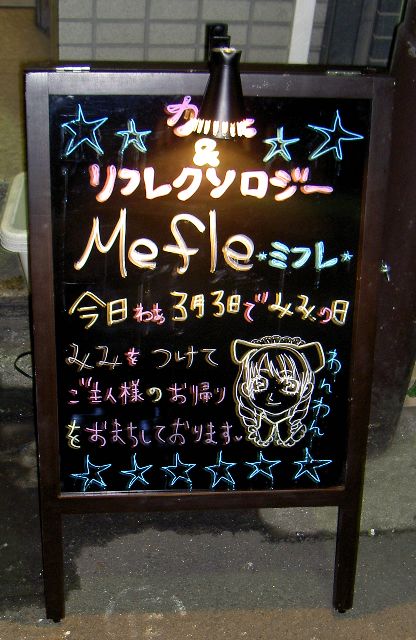 &
リフレクソロジー
Mefle *ミフレ*
今日わぁ 3月3日で みみの日
みみを つけて
ご主人様の お帰り
を おまちしております
わんわん